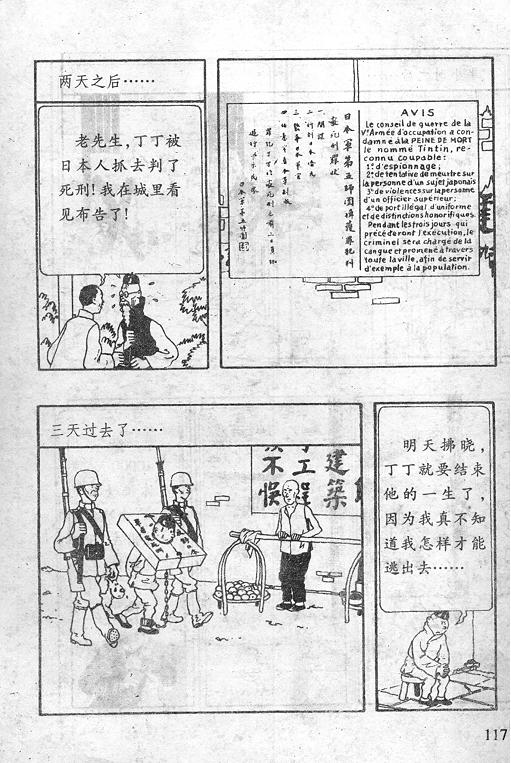 两天之后……
老先生,丁丁被
日本人抓去判了
死刑!我在城里看
见布告了!
日本軍第五師團
AVIS
Le conseil de guerre de la
Vᵉ Armée d'occupation a con-
damné à la PEINE DE MORT
le nommé Tintin, re-
connu coupable:
1.° d'espionnage;
2.° de tentative de meurtre sur
la personne d'un sujet japonais
3.° de violences sur la personne
d'un officier supérieur;
4.° de port illégal d'uniforme
et de distinctions honorifiques.
Pendant les trois jours qui
précéderont l'exécution, le
criminel sera chargé de la
cangue et promené à travers
toute la ville, afin de servir
d'exemple à la population.
三天过去了……
工
不
建築
明天拂晓,
丁丁就要结束
他的一生了,
因为我真不知
道我怎样才能
逃出去……
117